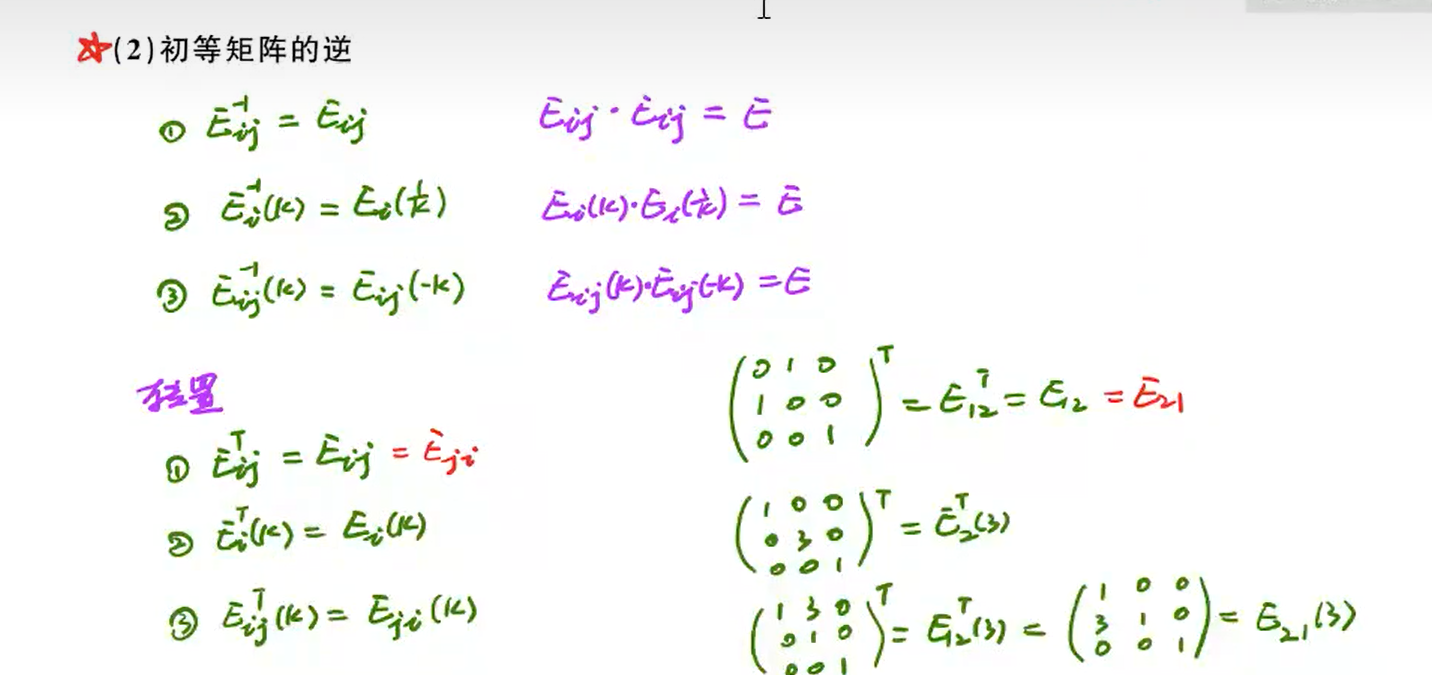 ☆(2)初等矩阵的逆
① E_{ij}^{-1} = E_{ij}  E_{ij} · E_{ij} = E
② E_i^{-1}(k) = E_i(1/k)  E_i(k)·E_i(1/k) = E
③ E_{ij}^{-1}(k) = E_{ij}(-k)  E_{ij}(k)·E_{ij}(-k) = E
转置
① E_{ij}^T = E_{ij} = E_{ji}
② E_i^T(k) = E_i(k)
③ E_{ij}^T(k) = E_{ji}(k)
(0 1 0
1 0 0
0 0 1)^T = E_{12}^T = E_{12} = E_{21}
(1 0 0
0 3 0
0 0 1)^T = E_2^T(3)
(1 3 0
0 1 0
0 0 1)^T = E_{12}^T(3) = (1 0 0
3 1 0
0 0 1) = E_{21}(3)